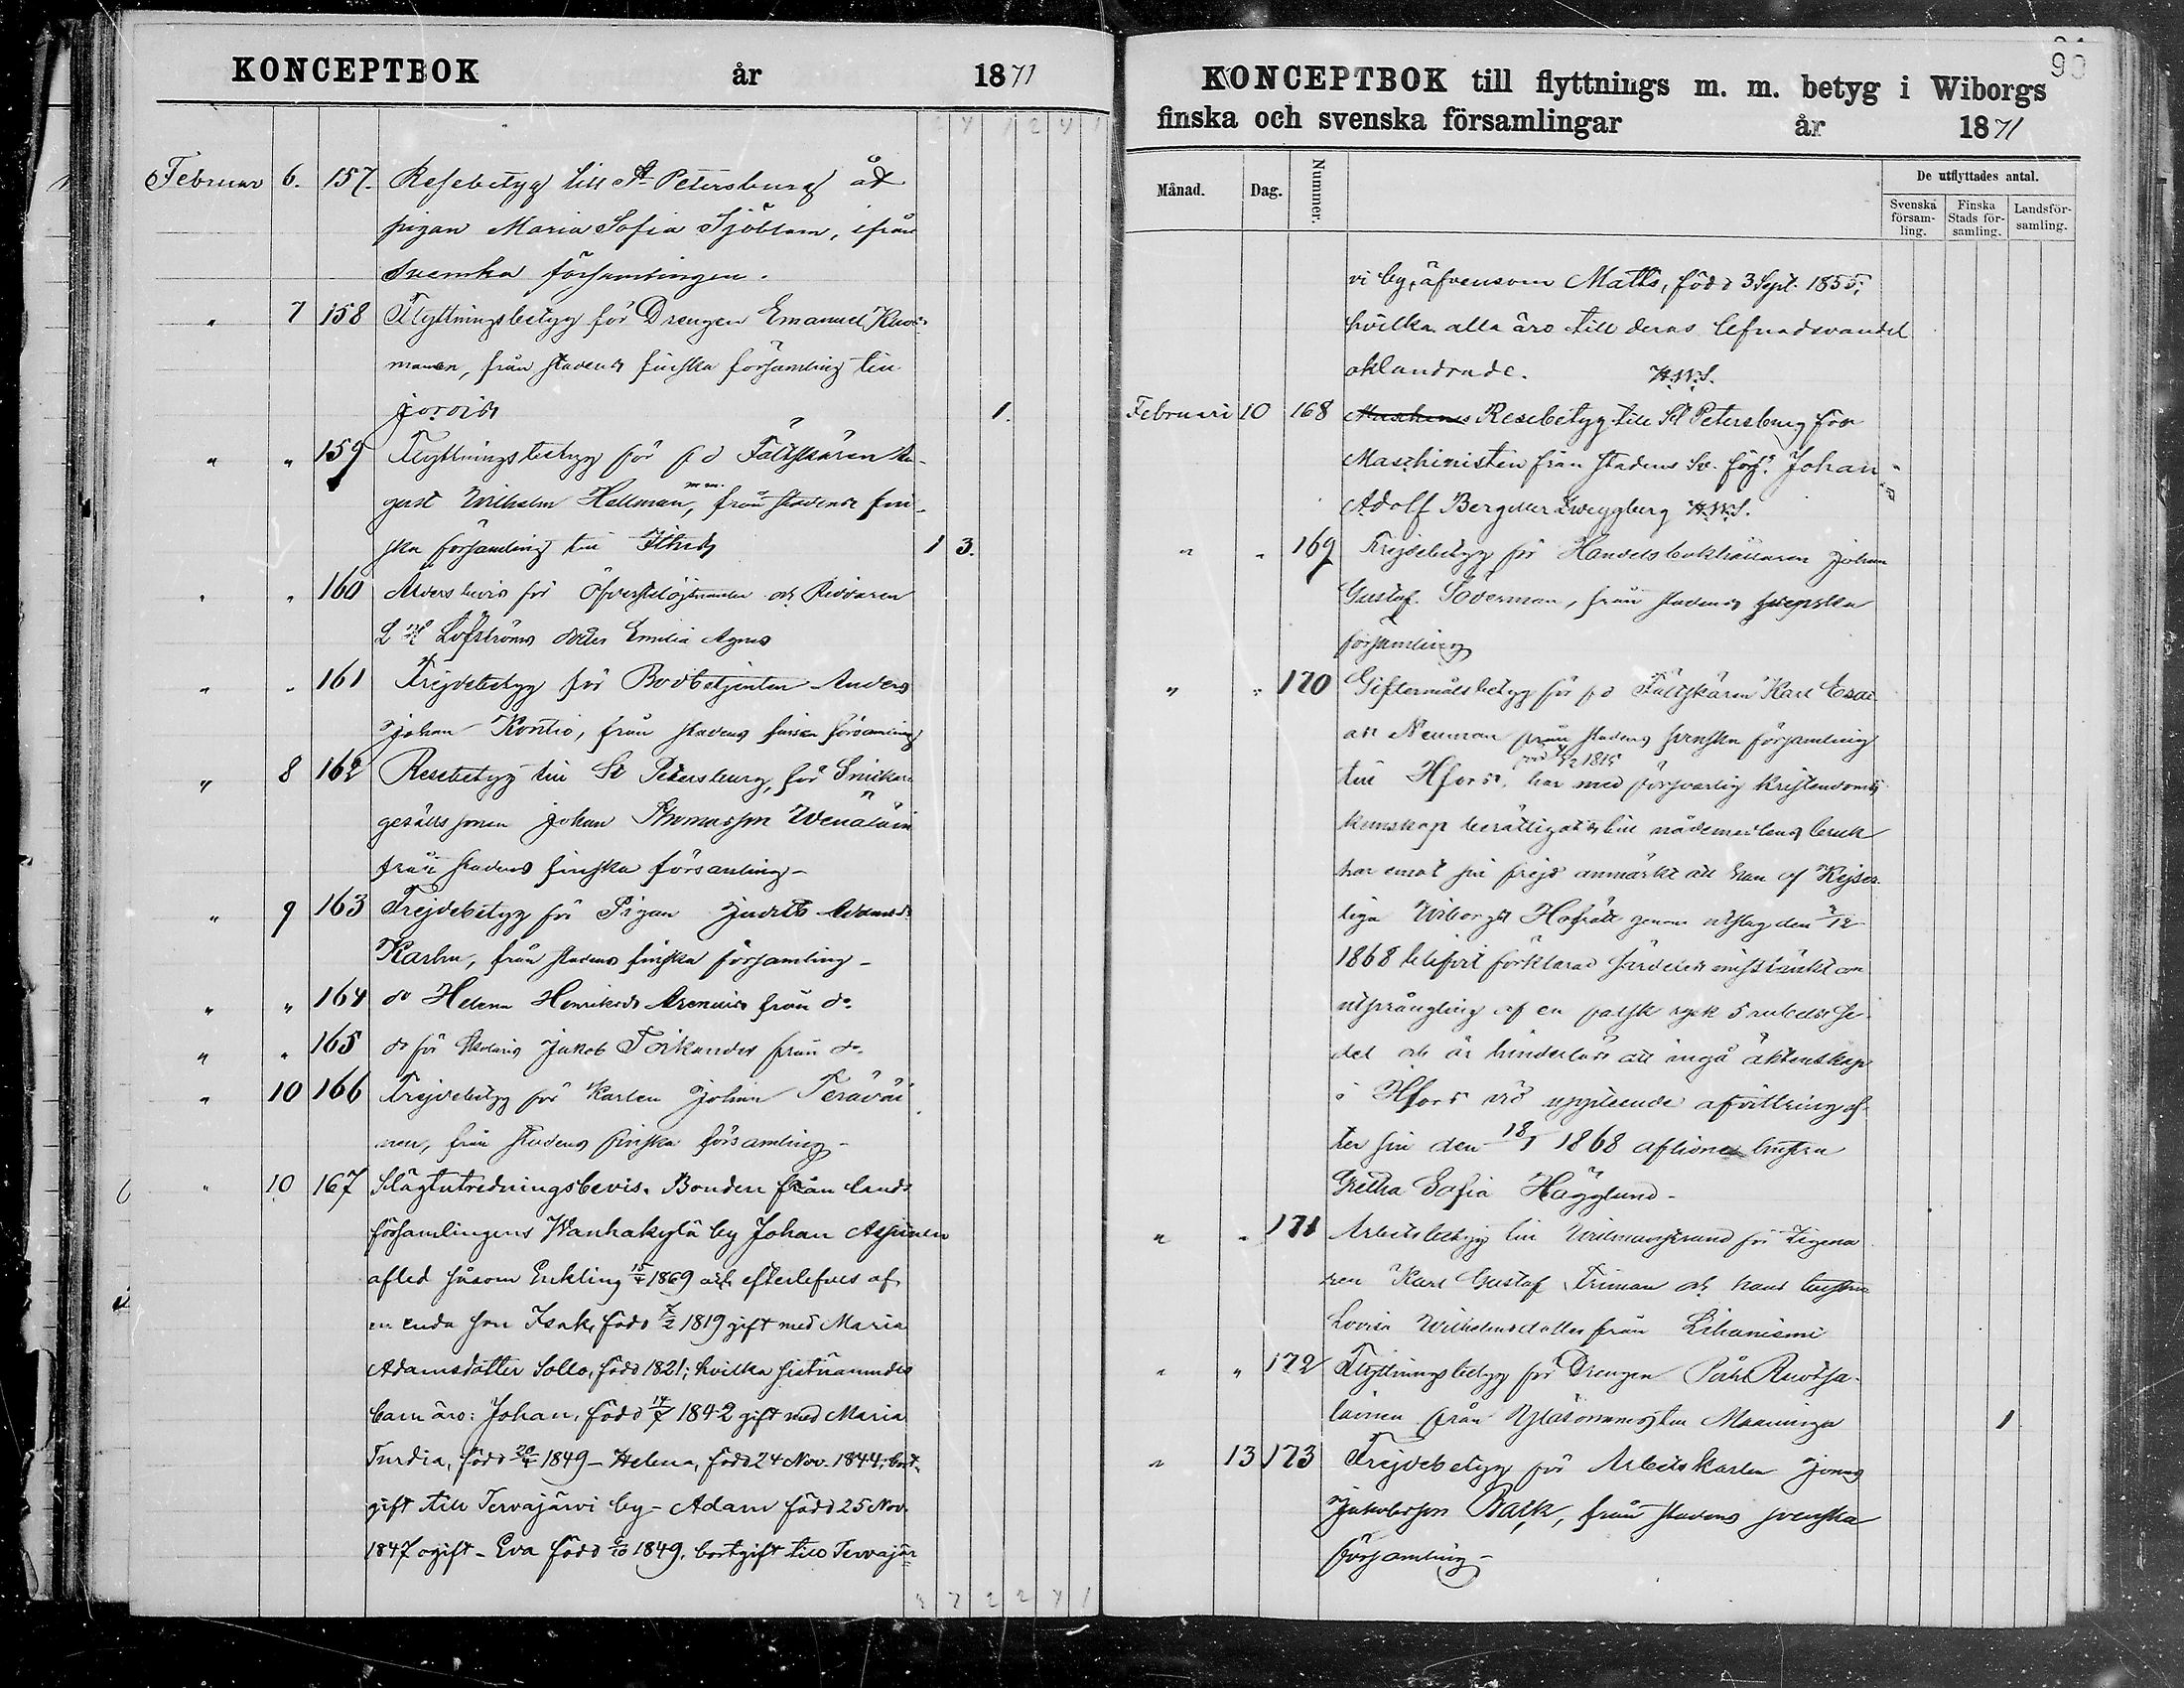 KONCEPTBOK år 1871
Februar 6. 157. Resebetyg till St Petersburg åt
pigan Maria Sofia Sjöblom, ifrån
Svenska församlingen.
" 7 158 Flyttningsbetyg för Drengen Emanuel
manen, från stadens finska församling till
Jorois 1.
" " 159 Flyttningsbetyg för fd Fältskären Au-
gust Wilhelm Hellman, från stadens fin-
ska församling till 1 3.
" " 160 Åldersbevis för Öfverstelöjtnanten och Riddaren
Löfströms dotter Emilia Agnes
" " 161 Frejdebetyg för Bodbetjenten Anders
Johan Kontio, från stadens finska församling
" 8 162 Resebetyg till St Petersburg, för Snickare
gesälls sonen Johan Thomasson Wenäläin
från stadens finska församling-
" 9 163 Frejdebetyg för Pigan Judith Adamsdr
Karhu, från stadens finska församling-
" " 164 do Helena Henriksdr Arenius från do
" " 165 do för Jakob från do
" 10 166 Frejdebetyg för Karlen Johan Teräväi
nen, från stadens finska församling-
" 10 167 Slägtutredningsbevis. Bonden från lands
församlingens Wanhakylä by Johan
afled såsom Enkling 15/4 1869 och efterlefves af
en enda son Isak, född 7/2 1819 gift med Maria
Adamsdotter Sollo, född 1821; hvilka sistnämndes
barn äro: Johan, född 14/7 1842 gift med Maria
Turdia, född 20/4 1849 - Helena, född 24 Nov. 1844, bort-
gift till Tervajärvi by - Adam född 25 Nov.
1847 ogift - Eva född 1849, bortgift till Tervajär-
90
KONCEPTBOK till flyttnings m. m. betyg i Wiborgs
finska och svenska församlingar år 1871
Månad. Dag. Nummer. De utflyttades antal.
Svenska församling. Finska Stads församling. Landsförsamling.
vi by, äfvensom Matts, född 3 Sept. 1855;
hvilka alla äro till deras lefnadsvandel
oklandrade. H.W.S.
Februari 10 168 Resebetyg till St Petersburg för
Maschinisten från stadens Sv. förs. Johan
Adolf Bergeller Zweygberg H.W.S.
" " 169 Frejdebetyg för Handelsbokhållaren Johan
Gustaf Söderman, från stadens svenska
församling
" " 170 Giftermålsbetyg för fd Fältskären Karl Esai
as Neuman från stadens svenska församling
till Hfors, har med försvarlig kristendoms
kunskap berättigats till nådemedlens bruk
har emot sin frejd anmärkt att han af Kejser
liga Wiborgs Hofrätt genom utslag den
1868 blifvit förklarad särdeles misstänkt om
utprångling af en falsk rysk 5 rubels se-
del och är hinderlös att ingå äktenskap
i Hfors vid uppteende afvittring ef-
ter sin den 18/1 1868 aflidna hustru
Gretha Sofia Hägglund-
" " 171 Arbetsbetyg till Wilmanstrand för
ren Karl Gustaf Friman och hans hustru
Lovisa Wilhelmsdotter från Lihaniemi
" " 172 Flyttningsbetyg för Drengen Pehr Ruotsa-
lainen från till Maaninga 1
" 13 173 Frejdebetyg för Arbetskarlen Jonas
Jakobsson Back, från stadens svenska
församling-